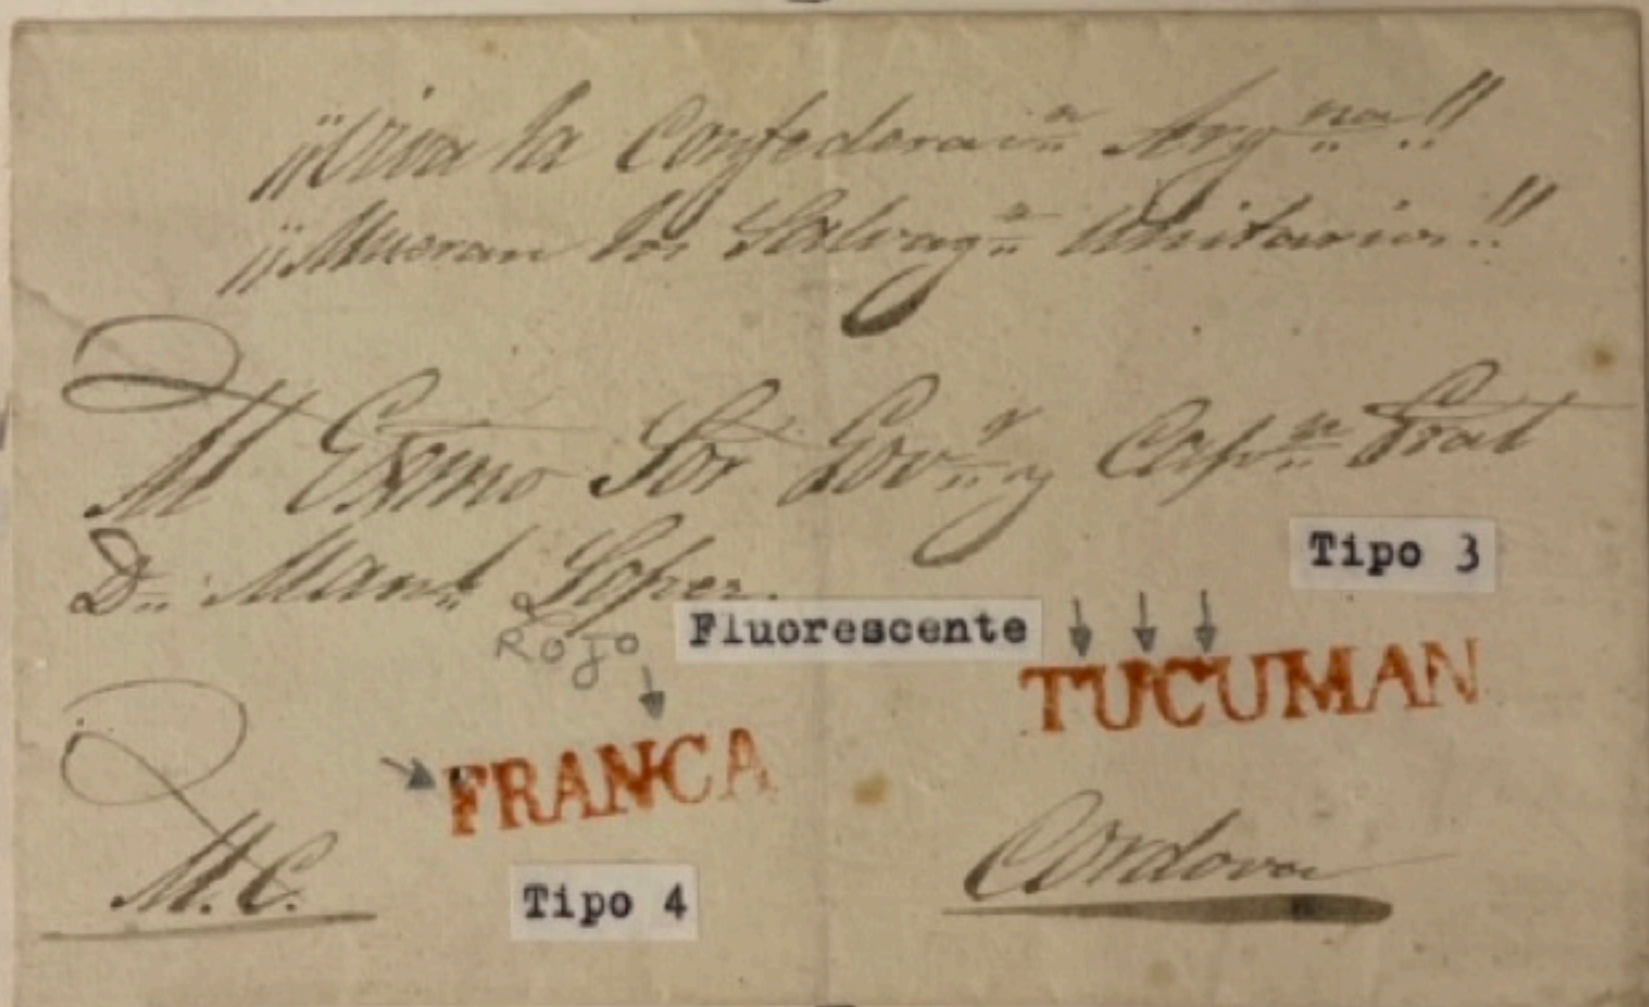 ¡¡Viva la Confederaⁿ Argⁿᵃ!!
¡¡Mueran los Salvagˢ Unitarios!!
Al Exmo Sor Govʳ y Capⁿ Gral
Dn Manl Lopez.
Rojo
Fluorescente
Tipo 3
TUCUMAN
FRANCA
M. C.
Tipo 4
Cordova